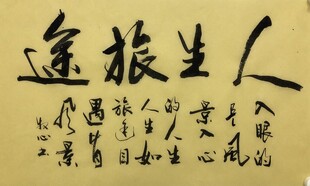 人生旅途
入眼的
是风
景入心
的人生
人生如
旅途目
遇皆
风景